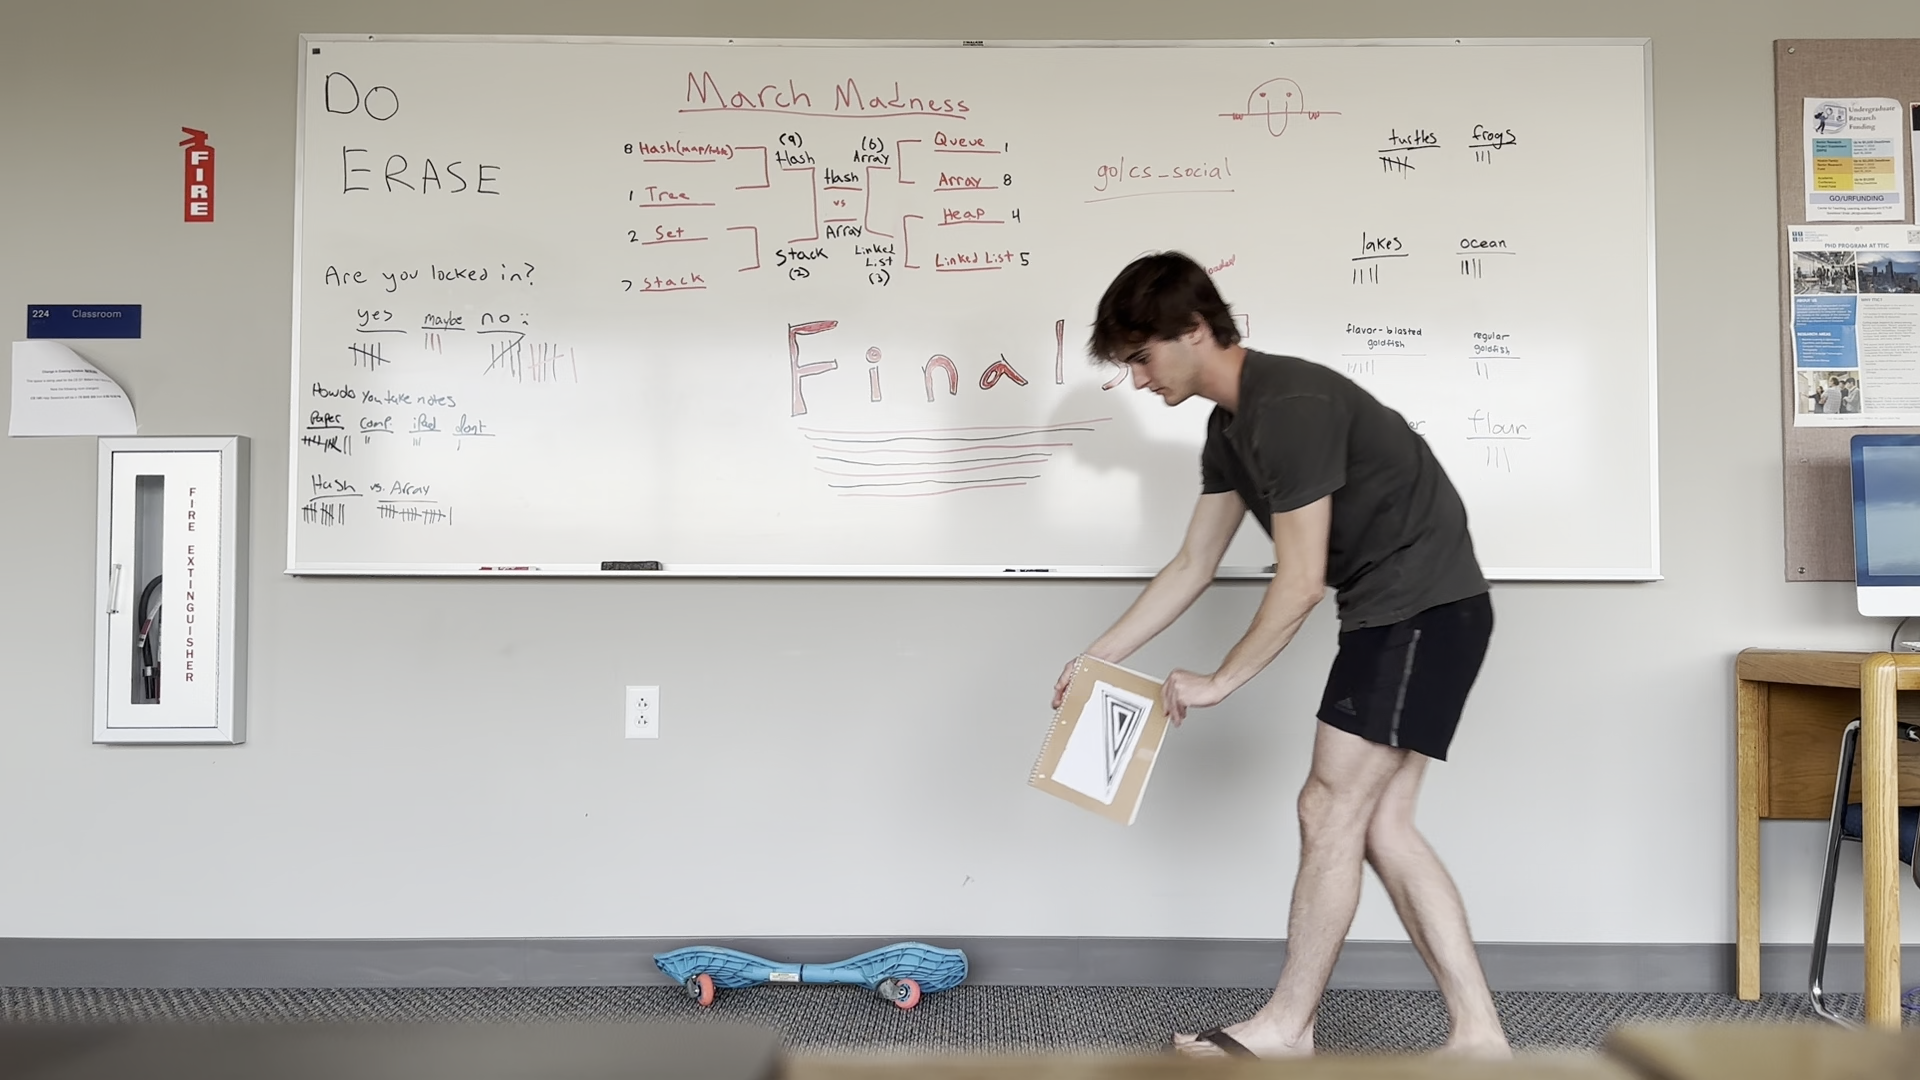 DO
ERASE
Are you locked in?
yes maybe no
How do you take notes
Paper comp. iPad dont
Hash vs. Array
March Madness
8 Hash(map/table)
1 Tree
2 Set
7 Stack
(9)
Hash
Stack
(2)
Hash
vs
Array
(6)
Array
Linked
List
(3)
Queue 1
Array 8
Heap 4
Linked List 5
Final
go/cs_social
turtles frogs
lakes ocean
flavor-blasted
goldfish
regular
goldfish
flour
FIRE
224 Classroom
FIRE EXTINGUISHER
Undergraduate
Research
Funding
GO/URFUNDING
PHD PROGRAM AT TTIC